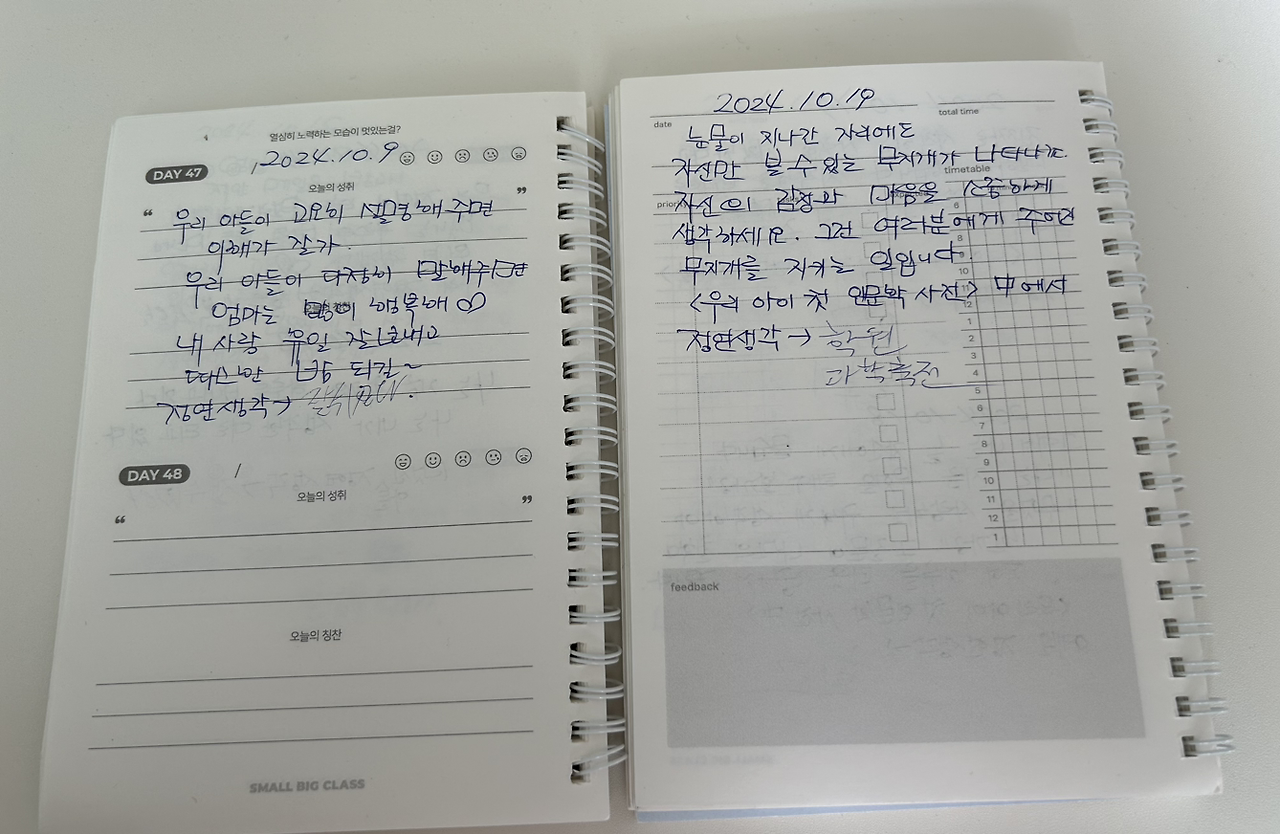 열심히 노력하는 모습이 멋있는걸?
DAY 47
2024.10.9
오늘의 성취
“
”
우리 아들이 고요히 설명해 주면
이해가 잘가.
우리 아들이 다정히 말해주면
엄마는 많이 행복해
내 사랑 휴일 잘보내고
따스한 밤 되길~
정연생각→
DAY 48
/
오늘의 성취
“
”
오늘의 칭찬
SMALL BIG CLASS
2024.10.19
date
total time
눈물이 지나간 자리에도
자신만 볼 수 있는 무지개가 나타나죠.
timetable
자신의 감정과 마음을 소중하게
6
생각하세요. 그건 여러분에게 주어진
8
무지개를 지키는 일입니다.
10
<우리 아이 첫 인문학 사전> 中에서
12
1
정연생각→ 학원
2
3
과학축전
4
5
6
7
8
9
10
11
12
1
feedback